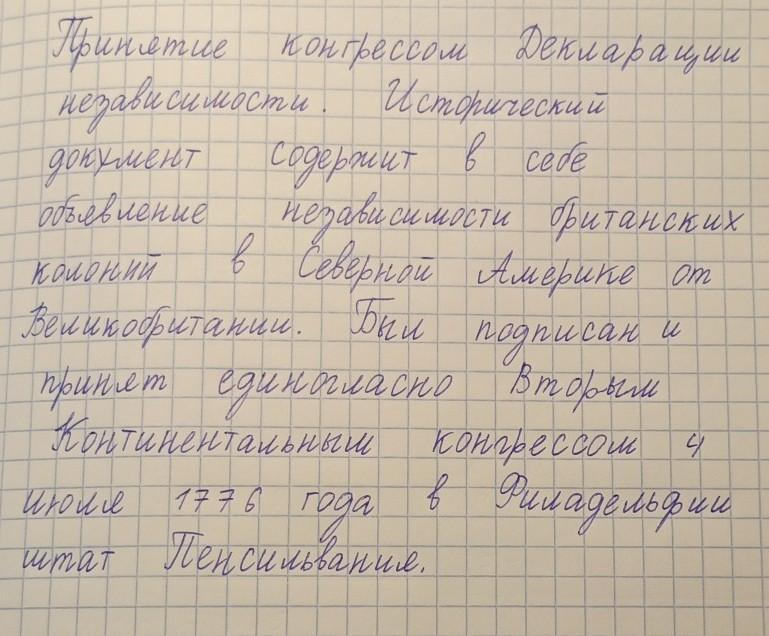 Принятие конгрессом Декларации
независимости. Исторический
документ содержит в себе
объявление независимости британских
колоний в Северной Америке от
Великобритании. Был подписан и
принят единогласно Вторым
Континентальным конгрессом 4
июля 1776 года в Филадельфии
штат Пенсильвания.